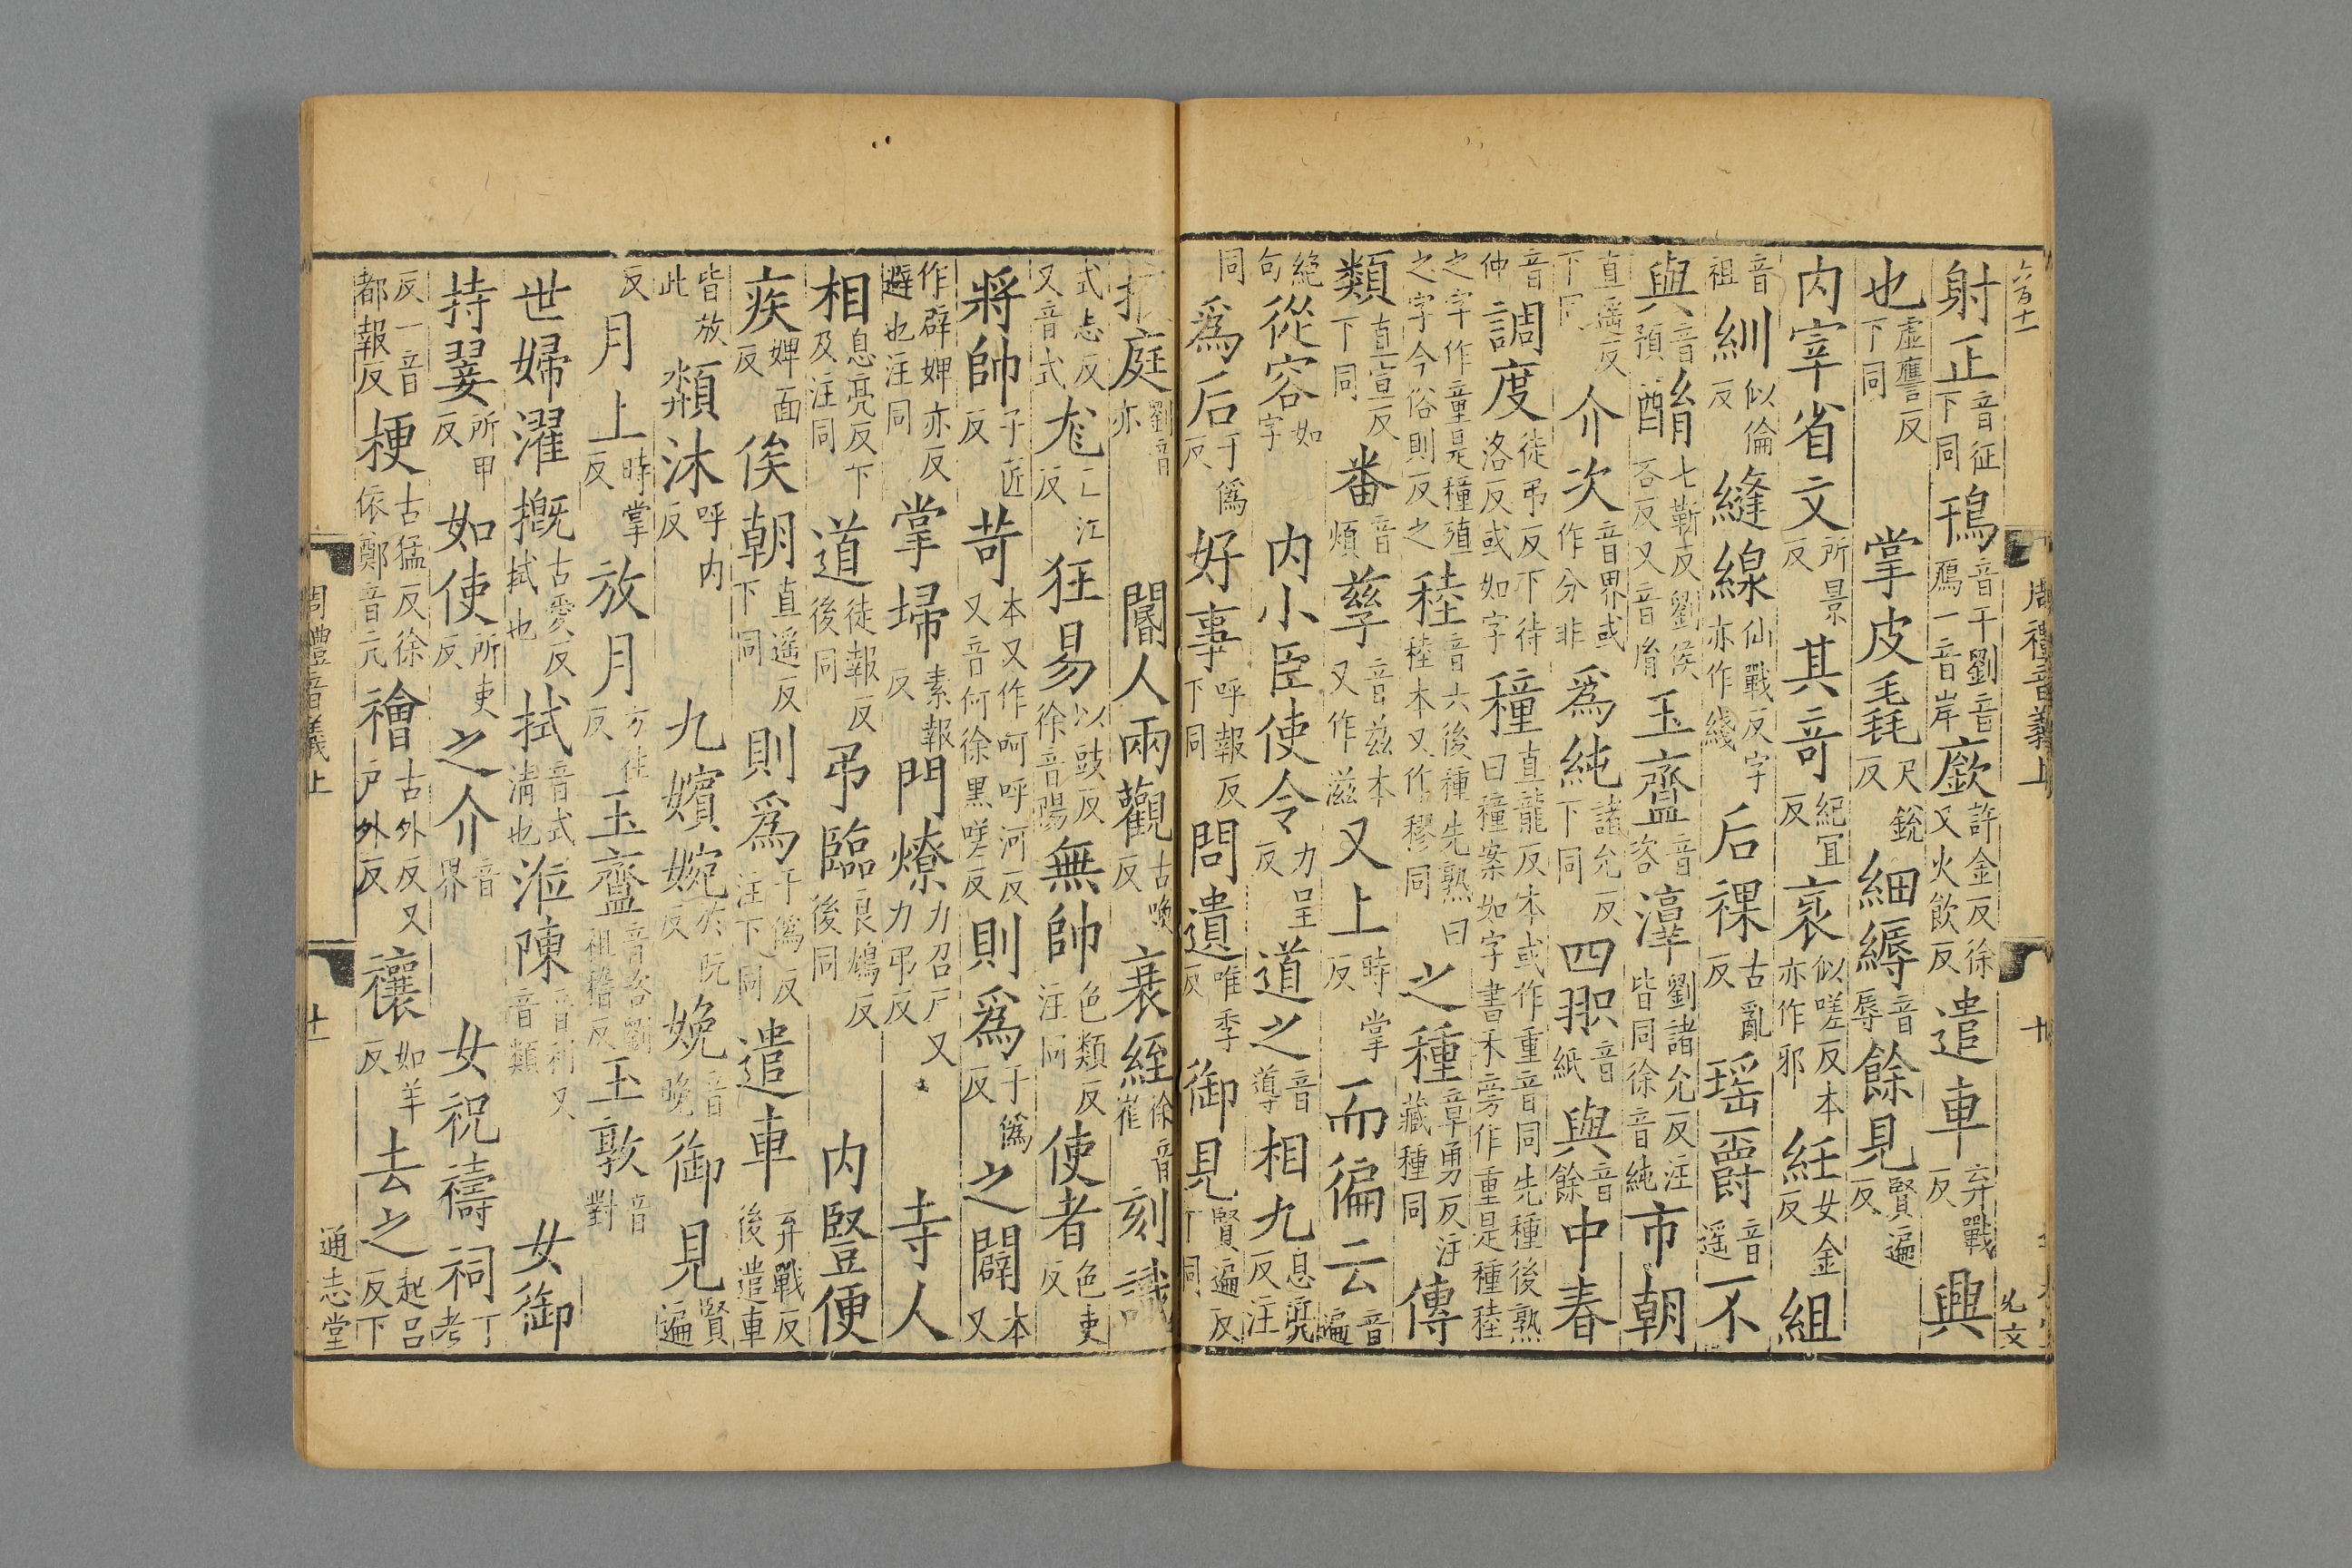 六百十一
周禮音義上
先文
射正音征下同鳱音干劉音鴈一音岸廞許金反徐又火飲反遣車弃戰反興
也虛應反下同 掌皮毛毳尺銳反細縟音辱餘見賢遍反
内宰省文所景反其奇紀宜反衺似嗟反本亦作邪紝女金反組
音祖紃似倫反縫線仙戰反字亦作綫后祼古亂反瑶爵音遥不
與音預酳七靳反劉侯吝反又音胤玉齍音咨淳劉諸允反注皆同徐音純市朝
直遥反下同介次音界或作分非爲純諸允反下同四咫音紙與音餘中春
音仲調度徒弔反下待洛反或如字穜直龍反本或作重音同先種後熟曰穜案如字書禾旁作重是種稑
之字作童是穜殖之字今俗則反之稑音六後種先熟曰稑本又作穋同之種章勇反注藏種同傳
類直宣反下同番音煩孳音兹本又作滋又上時掌反而徧云音遍
絶句從容如字 内小臣使令力呈反道之音導相九息亮反注
同爲后于僞反好事呼報反下同問遺唯季反御見賢遍反下同
掖庭劉音亦 閽人兩觀古喚反衰絰徐音崔刻識
式志反又音式尨亡江反狂易以豉反徐音陽無帥色類反注同使者色吏反
將帥子匠反苛本又作呵呼河反又音何徐黑嗟反則爲于僞反之闢本又
作辟婢亦反避也注同掌埽素報反門燎力召反又力弔反 寺人
相息亮反下及注同道徒報反後同弔臨良鴆反後同 内豎便
疾婢面反俟朝直遥反下同則爲于僞反注下同遣車弃戰反後遣車
皆放此類沬呼内反 九嬪婉於阮反娩音晚御見賢遍
反月上時掌反放月方往反玉齍音咨劉祖稽反玉敦音對
世婦濯摡古愛反拭也拭音式清也涖陳音利又音類 女御
持翣所甲反如使所吏反之介音界 女祝禱祠丁老
反一音都報反梗古猛反徐依鄭音亢禬古外反又户外反禳如羊反去之起呂反下
周禮音義上
十一
通志堂